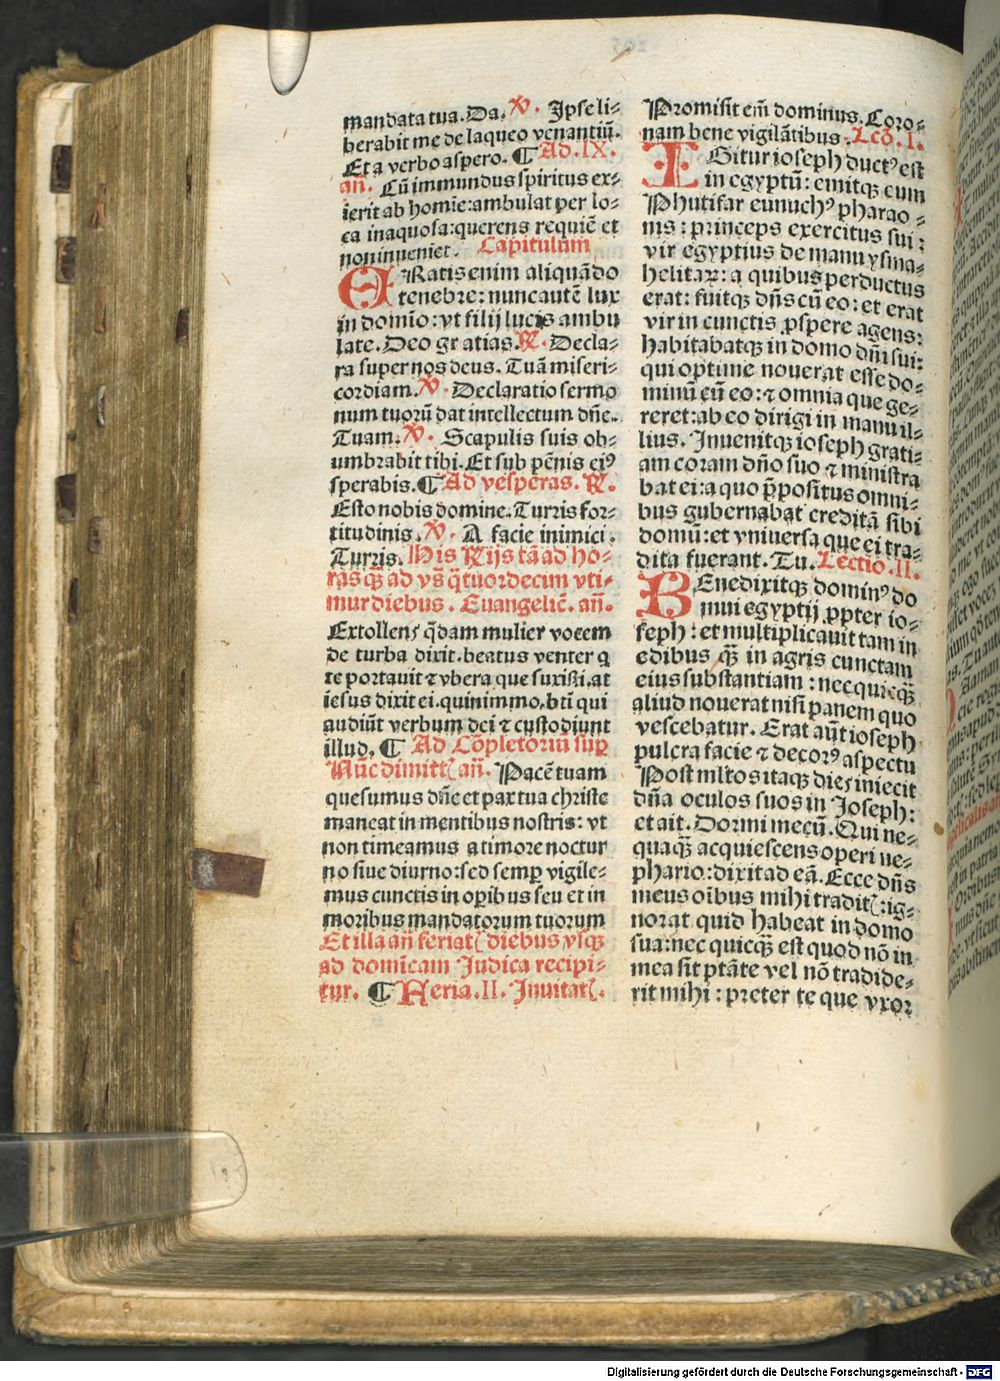 mandata tua. Da. V. Ipse li⸗
berabit me de laqueo venantiū.
Et a verbo aspero. ¶ Ad. IX.
añ. Cū immundus spiritus ex⸗
ierit ab homīe: ambulat per lo⸗
ca inaquosa: querens requiē et
non inueniet. Capitulum
ERatis enim aliquādo
tenebre: nunc autē lux
in domīo: vt filij lucis ambu
late. Deo gratias. R. Decla⸗
ra super nos deus. Tuā miseri⸗
cordiam. V. Declaratio sermo
num tuorū dat intellectum dñe.
Tuam. V. Scapulis suis ob⸗
umbrabit tibi. Et sub pēnis eiꝰ
sperabis. ¶ Ad vesperas. R.
Esto nobis domine. Turris for⸗
titudinis. V. A facie inimici.
Turris. His Rijs tā ad ho⸗
ras qꝫ ad vs̄ q̄tuordecim vti⸗
mur diebus. Euangelic̄. añ.
Extollens q̄dam mulier vocem
de turba dixit. beatus venter q
te portauit ⁊ vbera que suxisti. at
iesus dixit ei. quinimmo. bt̄i qui
audiūt verbum dei ⁊ custodiunt
illud. ¶ Ad Cōpletoriū sup
Nūc dimitt. añ. Pacē tuam
quesumus dñe et pax tua christe
maneat in mentibus nostris: vt
non timeamus a timore noctur
no siue diurno: sed semp vigile⸗
mus cunctis in opibus seu et in
moribus mandatorum tuorum
Et illa añ feriat diebus vsqꝫ
ad domīcam Judica recipi⸗
tur. ¶ Feria. II. Inuitat.
Promisit em̄ dominus. Coro⸗
nam bene vigilātibus. Lcō. I.
IGitur ioseph ductꝰ est
in egyptū: emitqꝫ eum
Phutifar eunuchꝰ pharao⸗
nis: princeps exercitus sui:
vir egyptius de manu ysma⸗
helitaꝝ: a quibus perductus
erat: fuitqꝫ dñs cū eo: et erat
vir in cunctis ꝓspere agens:
habitabatqꝫ in domo dñi sui:
qui optime nouerat esse do⸗
minū cū eo: ⁊ omnia que ge⸗
reret: ab eo dirigi in manu il⸗
lius. Inuenitqꝫ ioseph grati⸗
am coram dño suo ⁊ ministra
bat ei: a quo p̄positus omni⸗
bus gubernabat creditā sibi
domū: et vniuersa que ei tra⸗
dita fuerant. Tu. Lectio. II.
BEnedixitqꝫ dominꝰ do
mui egyptij ꝓpter io⸗
seph: et multiplicauit tam in
edibus qꝫ in agris cunctam
eius substantiam: nec quicqꝫ
aliud nouerat nisi panem quo
vescebatur. Erat aūt ioseph
pulcra facie ⁊ decorꝰ aspectu
Post ml̄tos itaqꝫ dies iniecit
dña oculos suos in Joseph:
et ait. Dormi mecū. Qui ne⸗
quaqꝫ acquiescens operi ne⸗
phario: dixit ad eā. Ecce dñs
meus oībus mihi tradit: ig⸗
norat quid habeat in domo
sua: nec quicqꝫ est quod nō in
mea sit ptāte vel nō tradide⸗
rit mihi: preter te que vxor
Digitalisierung gefördert durch die Deutsche Forschungsgemeinschaft - DFG